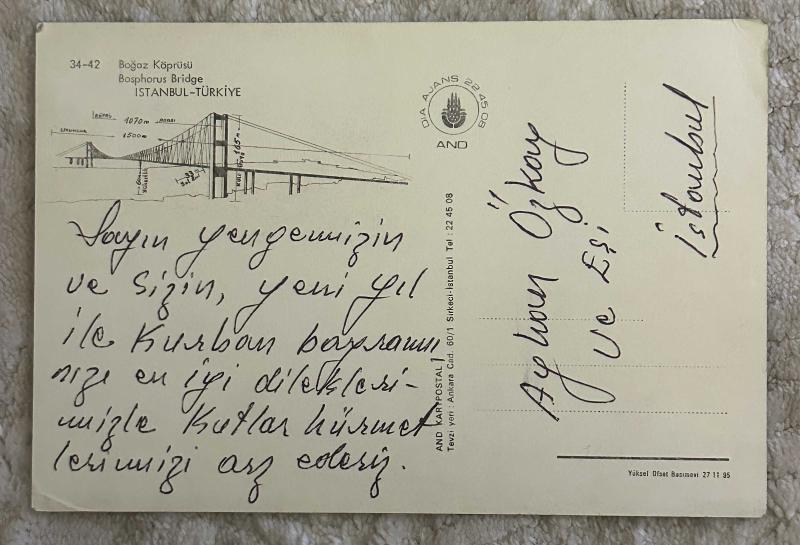 34-42 Boğaz Köprüsü
Bosphorus Bridge
İSTANBUL-TÜRKİYE
1070m
1500m
165m
DİA AJANS 22 45 08
AND
Sayın yengemizin
ve sizin, yeni yıl
ile Kurban bayramı
nızı en iyi dilekleri-
mizle Kutlar hürmet
lerimizi arz ederiz.
AND KARTPOSTAL
Tevzi yeri: Ankara Cad. 60/1 Sirkeci-İstanbul Tel : 22 45 08
Ayhan Özkay
ve Eşi
İstanbul
Yüksel Ofset Basımevi 27 11 95